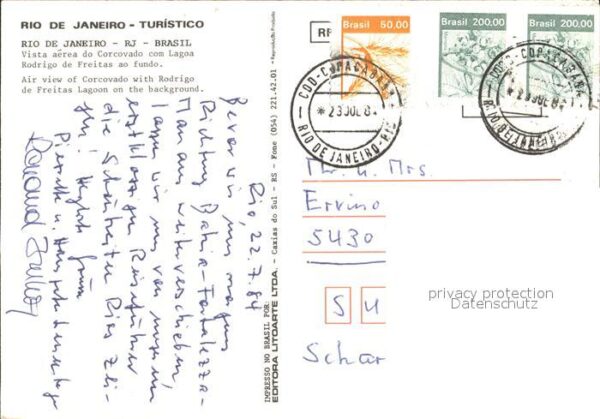 RIO DE JANEIRO - TURÍSTICO
RIO DE JANEIRO - RJ - BRASIL
Vista aérea do Corcovado com Lagoa
Rodrigo de Freitas ao fundo.
Air view of Corcovado with Rodrigo
de Freitas Lagoon on the background.
Reprodução Proibida
IMPRESSO NO BRASIL POR:
EDITORA LITOARTE LTDA. - Caxias do Sul - RS - Fone (054) 221.42.01
Rio, 22.7.84
Bevor wir uns morgen
Richtung Bahia-Fortaleza-
Manaus weiterverschieben,
lassen wir uns von unserem
erstklassigen Reiseführer
die Schönheiten Rios zei-
gen! Herzliche Grüsse
Brasil 50,00
Brasil 200,00
Brasil 200,00
COD-COPACABANA
23 JUL 84
RIO DE JANEIRO-RJ
COD-COPACABANA
23 JUL 84
RIO DE JANEIRO-RJ
Mr. u. Mrs.
Ervino
5430
S U
Schar
privacy protection
Datenschutz